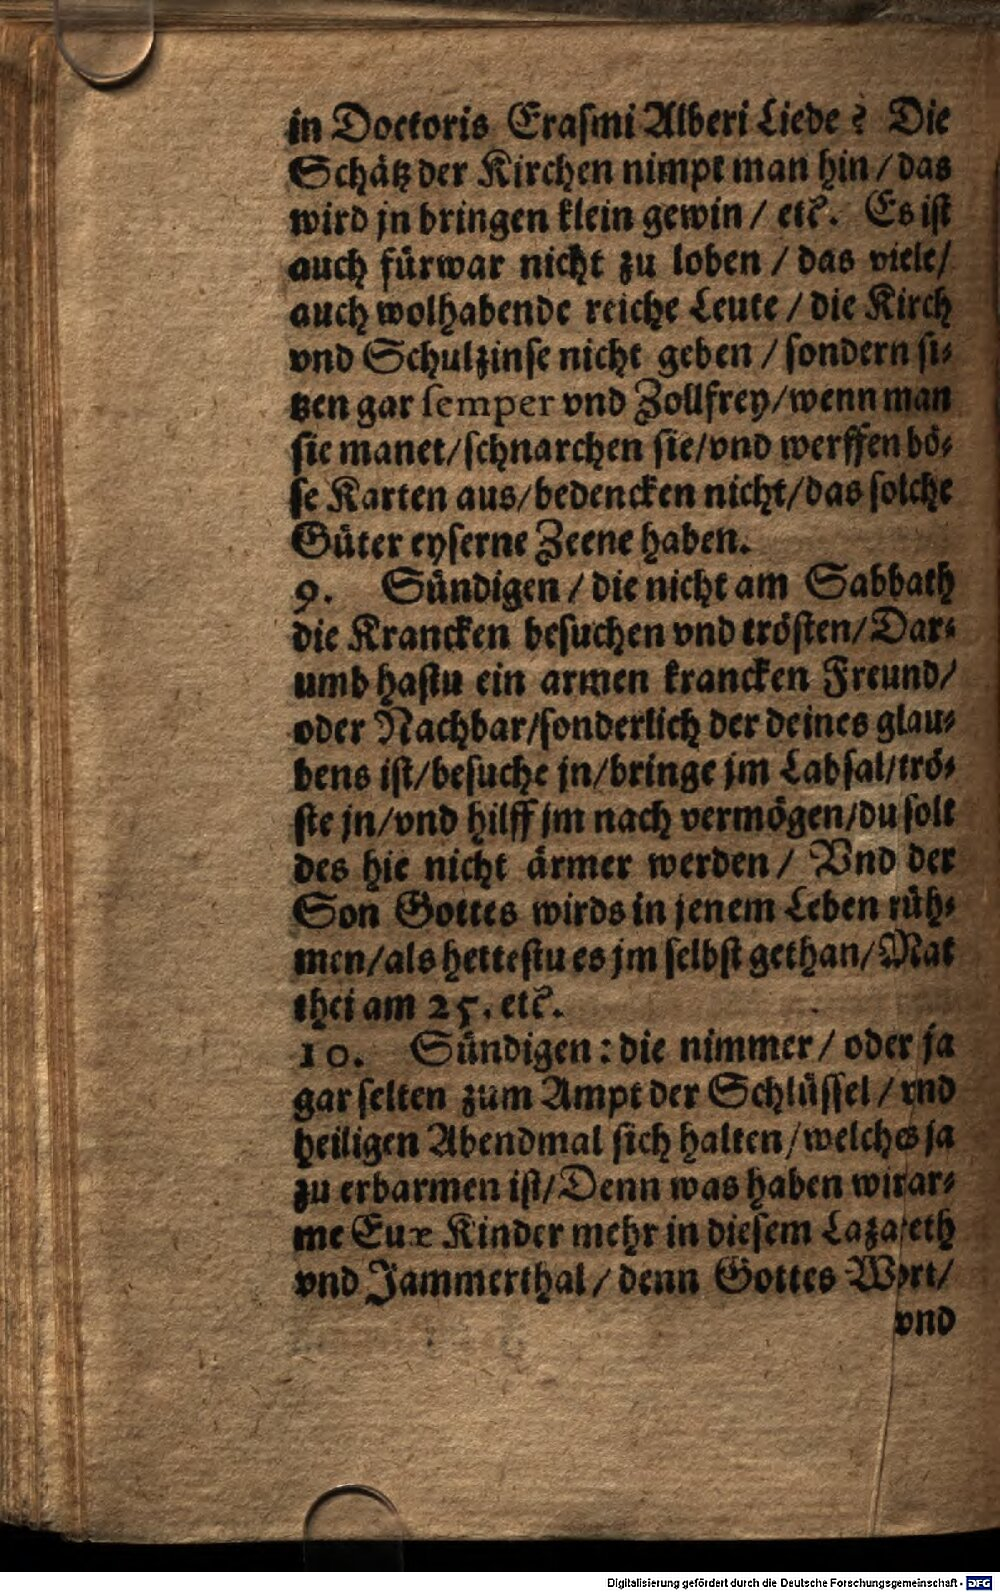 in Doctoris Erasmi Alberi Liede? Die
Schätz der Kirchen nimpt man hin / das
wird jn bringen klein gewin / etc. Es ist
auch fürwar nicht zu loben / das viele/
auch wolhabende reiche Leute / die Kirch
vnd Schulzinse nicht geben / sondern si-
tzen gar semper vnd Zollfrey/wenn man
sie manet/schnarchen sie/vnd werffen bö-
se Karten aus/bedencken nicht/das solche
Güter eyserne Zeene haben.
9. Sündigen / die nicht am Sabbath
die Krancken besuchen vnd trösten/Dar-
umb hastu ein armen krancken Freund/
oder Nachbar/sonderlich der deines glau-
bens ist/besuche jn/bringe jm Labsal/trö-
ste jn/vnd hilff jm nach vermögen/du solt
des hie nicht ärmer werden / Vnd der
Son Gottes wirds in jenem Leben rüh-
men/als hettestu es jm selbst gethan/Mat
thei am 25. etc.
10. Sündigen: die nimmer / oder ja
gar selten zum Ampt der Schlüssel / vnd
heiligen Abendmal sich halten/welches ja
zu erbarmen ist/Denn was haben wir ar-
me Eux Kinder mehr in diesem Lazareth
vnd Jammerthal / denn Gottes Wort/
vnd
Digitalisierung gefördert durch die Deutsche Forschungsgemeinschaft - DFG